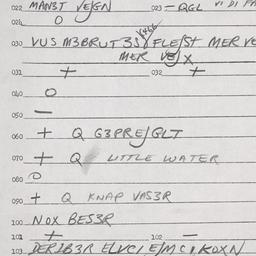 022 MAN3T VEJGN 023 — QGL
024 O
030 VUS M3BRUT3S FLEJST MER
MER VEJX
031 + 032 +
040 O
050 —
060 + Q G3PREJGLT
070 + Q LITTLE WATER
080 O
090 + Q KNAP VAS3R
100 NOX BES3R
101 + 102 —
103 DER1B3R ELVCI E/MCIKOXN